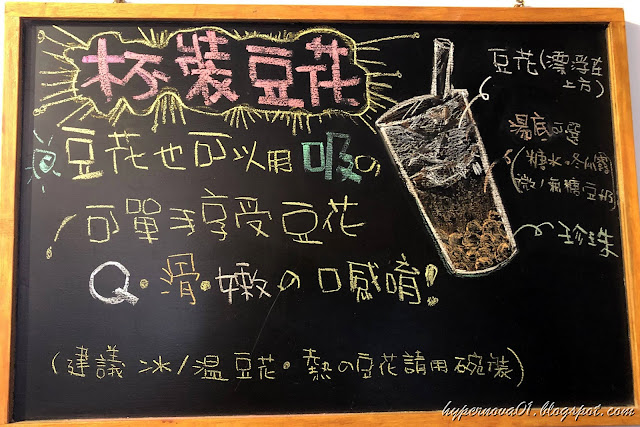 杯裝豆花
豆花也可以用吸の
可單手享受豆花
Q·滑·嫩の口感唷!
(建議 冰/溫豆花·熱の豆花請用碗裝)
豆花(漂浮在
上方)
湯底可選
(糖水·冬瓜露
微/無糖豆奶)
珍珠
hypernova01.blogspot.com